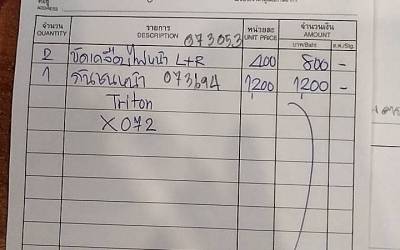 ที่อยู่
ADDRESS
จำนวน รายการ หน่วยละ จำนวนเงิน
QUANTITY DESCRIPTION 073053 UNIT PRICE AMOUNT
บาท/Baht ส.ต./Stg.
2 ขัดเคลือบไฟหน้า L+R 400 800 -
1 กันชนหน้า 073694 1,200 1,200 -
Triton
X072